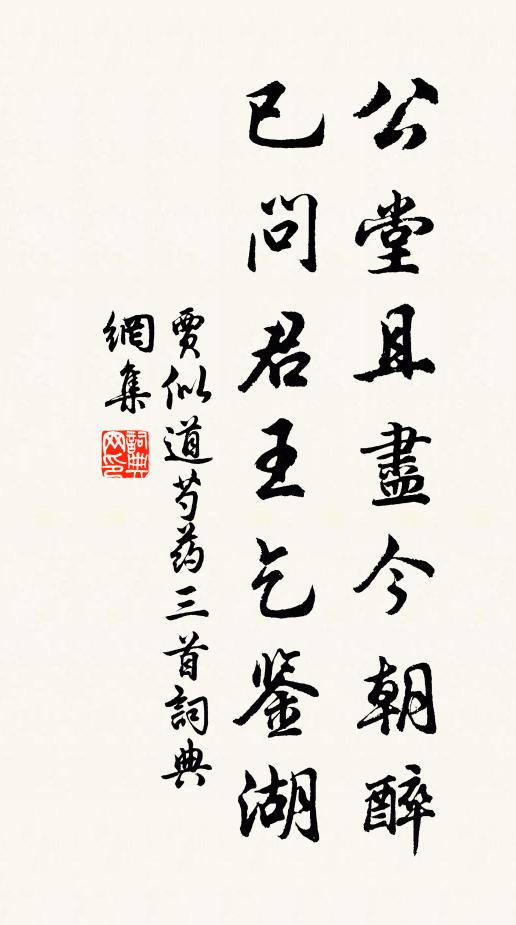 公堂且盡今朝醉
已問君王乞鑒湖
賈似道芍药三首詞典
網集
詞典
网印